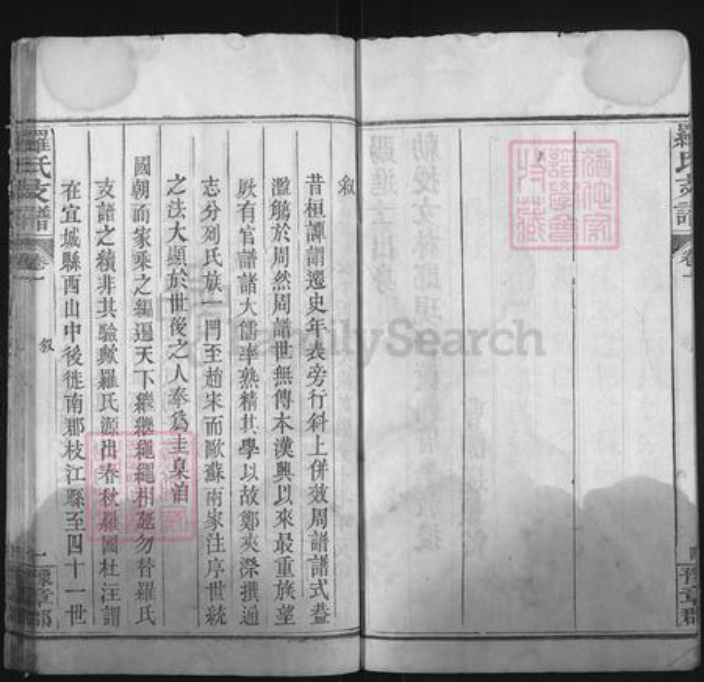 羅氏支譜
卷一
豫章郡
敘
昔桓譚謂遷史年表旁行斜上併效周譜譜式葢
濫觴於周然周譜世無傳本漢興以來最重族望
厥有官譜譜大儒率熟精其學以故鄭夾漈撰通
志分列氏族一門至趙宋而歐蘇兩家注序世統
之法大顯於世後之人奉為圭臬洎
國朝而家乘之編遍天下繼繼繩繩相延勿替羅氏
支譜之續非其驗歟羅氏源出春秋羅國杜注謂
在宜城縣西山中後徙南郡枝江縣至四十一世
羅氏支譜
卷一
敘
一
豫章郡
FamilySearch